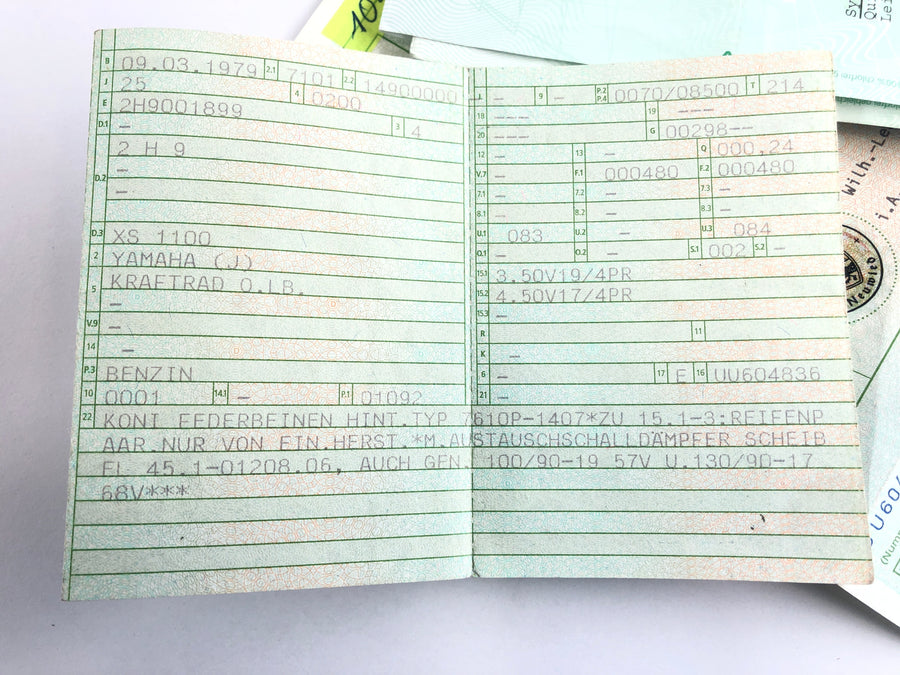 B 09.03.1979 2.1 7101 2.2 14900000
J 25 4 0200
E 2H9001899
D.1 – 3 4
2 H 9
D.2 –
–
D.3 XS 1100
2 YAMAHA (J)
5 KRAFTRAD O.LB.
–
V.9 –
14 –
P.3 BENZIN
10 0001 14.1 – P.1 01092
L – 9 – P.2 P.4 0070/08500 T 214
18 ---- 19 ----
20 ---- G 00298--
12 – 13 – Q 000,24
V.7 – F.1 000480 F.2 000480
7.1 – 7.2 – 7.3 –
8.1 – 8.2 – 8.3 –
U.1 083 U.2 – U.3 084
O.1 – O.2 – S.1 002 S.2 –
15.1 3.50V19/4PR
15.2 4.50V17/4PR
15.3 –
R 11
K –
6 – 17 E 16 UU604836
21 –
22 KONI FEDERBEINEN HINT.TYP 7610P-1407*ZU 15.1-3:REIFENP
AAR.NUR VON EIN.HERST.*M.AUSTAUSCHSCHALLDÄMPFER SCHEIB
EL 45.1-01208.06, AUCH GEN. 100/90-19 57V U.130/90-17
68V***
Wilh.-Le
i.A.
Neuwied
UU60
(Num